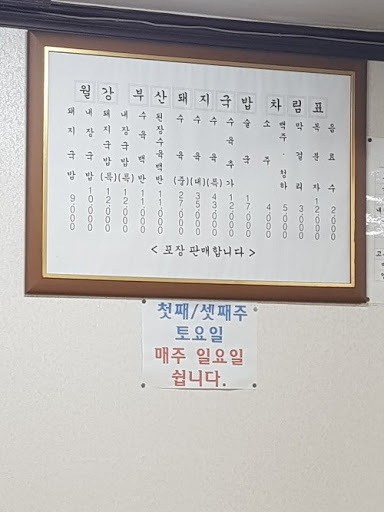 월강 부산돼지국밥 차림표
돼지국밥 9000
내장국밥 10000
돼지국밥(특)
내장국밥(특)
수육백반 11000
된장수육백반 11000
수육(중) 27000
수육(대) 35000
수육(특) 43000
수육추가 12000
술국 17000
소주 4000
맥주·청하 5000
막걸리 3000
음료수 2000
< 포장 판매합니다 >
첫째/셋째주
토요일
매주 일요일
쉽니다.